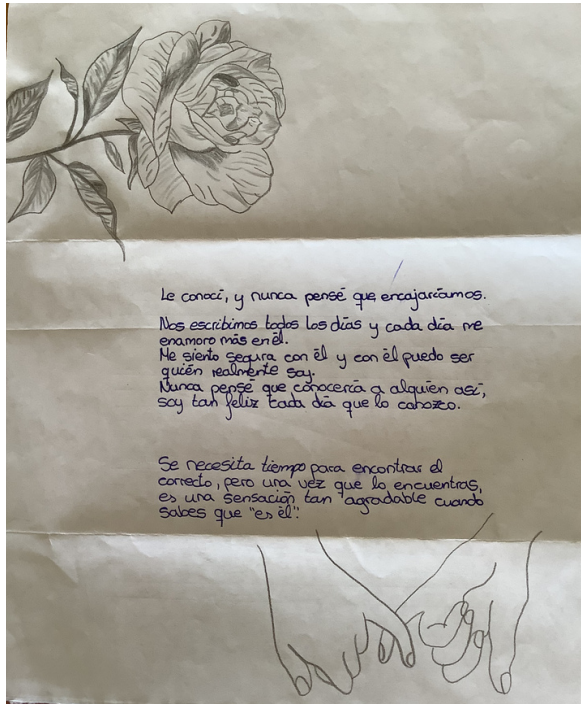 Le conocí, y nunca pensé que encajaríamos.
Nos escribimos todos los días y cada día me
enamoro más en él.
Me siento segura con él y con él puedo ser
quién realmente soy.
Nunca pensé que conocería a alguien así,
soy tan feliz cada día que lo conozco.
Se necesita tiempo para encontrar el
correcto, pero una vez que lo encuentras,
es una sensación tan agradable cuando
sabes que "es él".